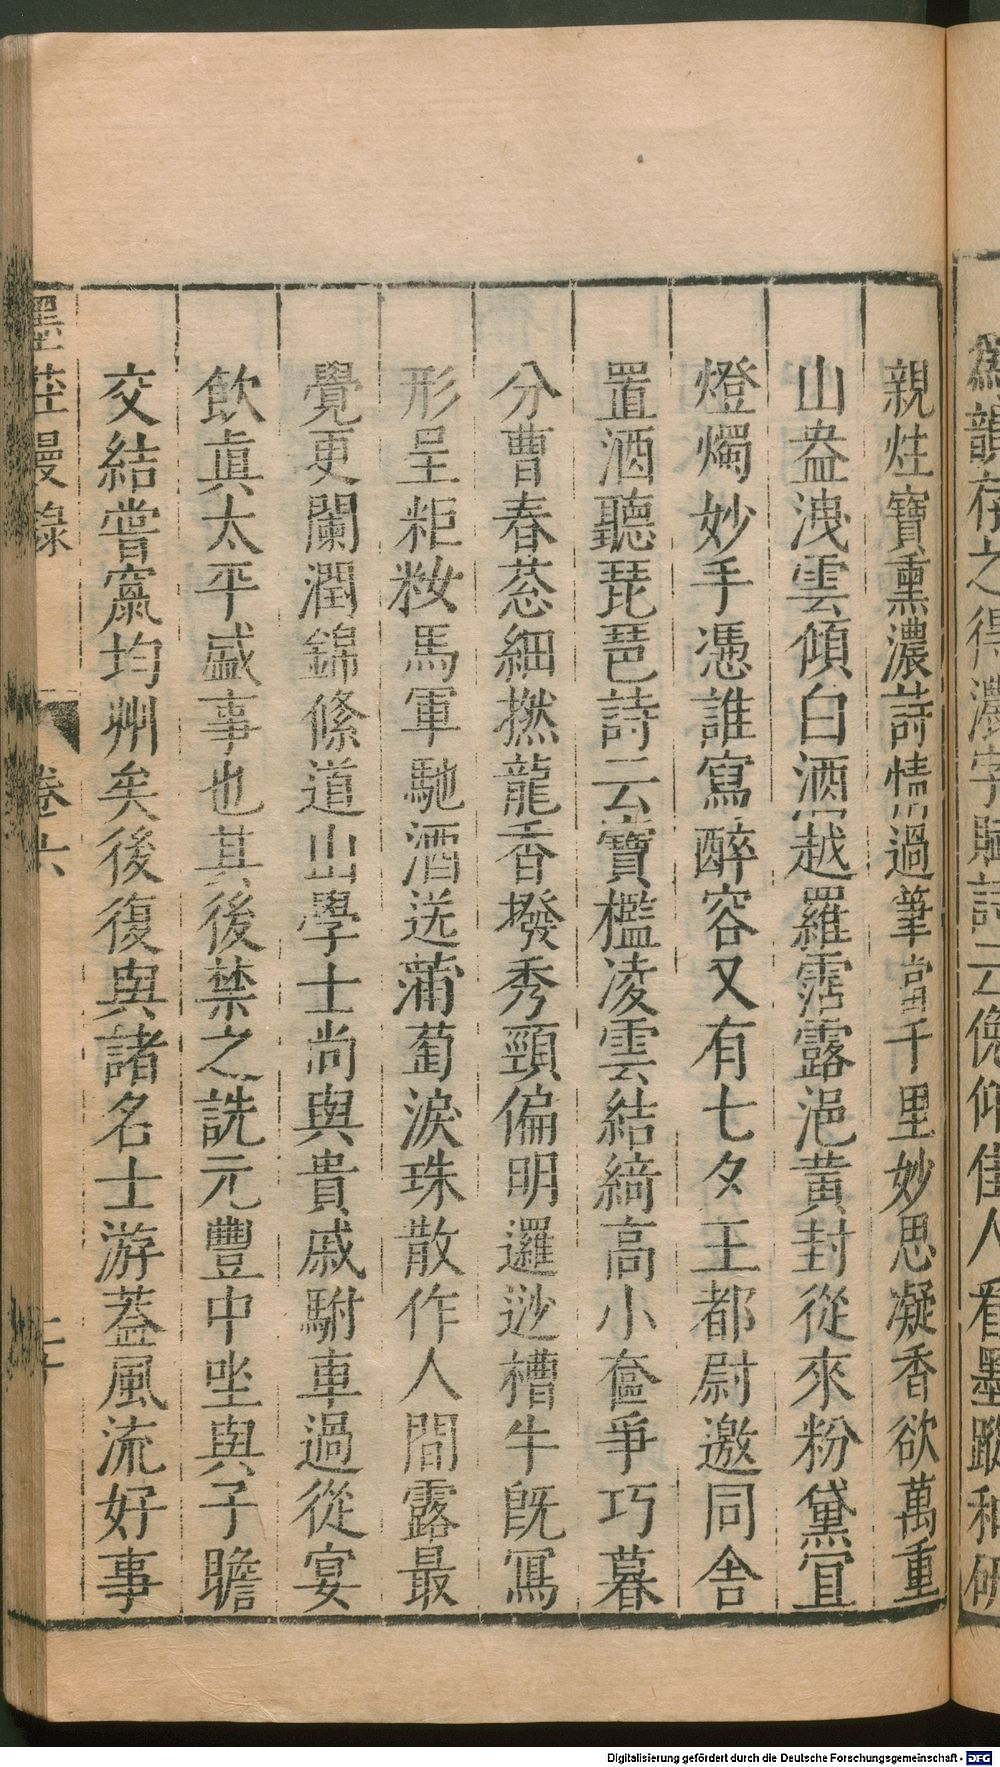 爲韻存之得濃字賦詩云俛仰佳人看墨蹤和硏
親炷寶熏濃詩情過筆當千里妙思凝香欲萬重
山盎洩雲傾白酒越羅霑露浥黃封從來粉黛宜
燈燭妙手憑誰寫醉容又有七夕王都尉邀同舍
置酒聽琵琶詩云寶檻凌雲結綺高小奩爭巧暮
分曹春葱細撚龍香撥秀頸偏明邏逤槽牛旣冩
形呈粔籹馬軍馳酒送蒲萄淚珠散作人間露最
覺更闌潤錦絛道山學士尚與貴戚駙車過從宴
飲眞太平盛事也其後禁之詵元豐中坐與子瞻
交結嘗竄均州矣後復與諸名士游蓋風流好事
墨莊漫錄 卷六 二十
Digitalisierung gefördert durch die Deutsche Forschungsgemeinschaft - DFG